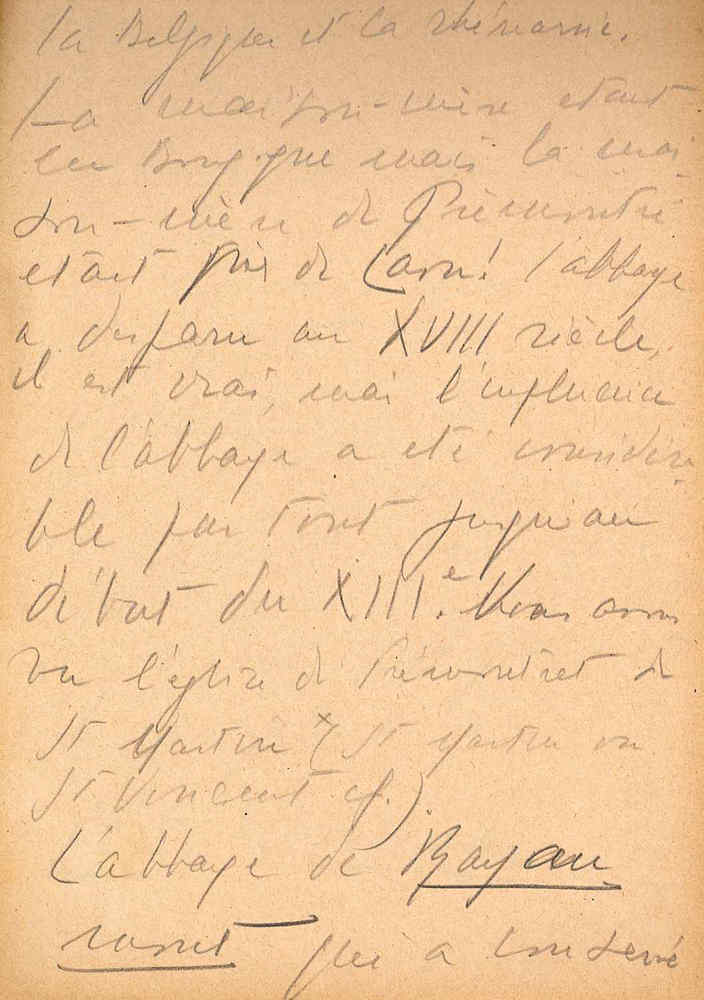 la Belgique et la Rhénanie.
La maison-mère étant
en Bourgogne mais la mai
son-mère de Prémontré
était près de Laon! l'abbaye
a disparu au XVIII siècle,
il est vrai, mais l'influence
de l'abbaye a été considéra
ble partout jusqu'au
début du XIIIe. Nous avons
vu l'église de Prémontret de
St Martin x (St Martin ou
St Vincent cf.)
L'abbaye de Royau
mont qui a conservé